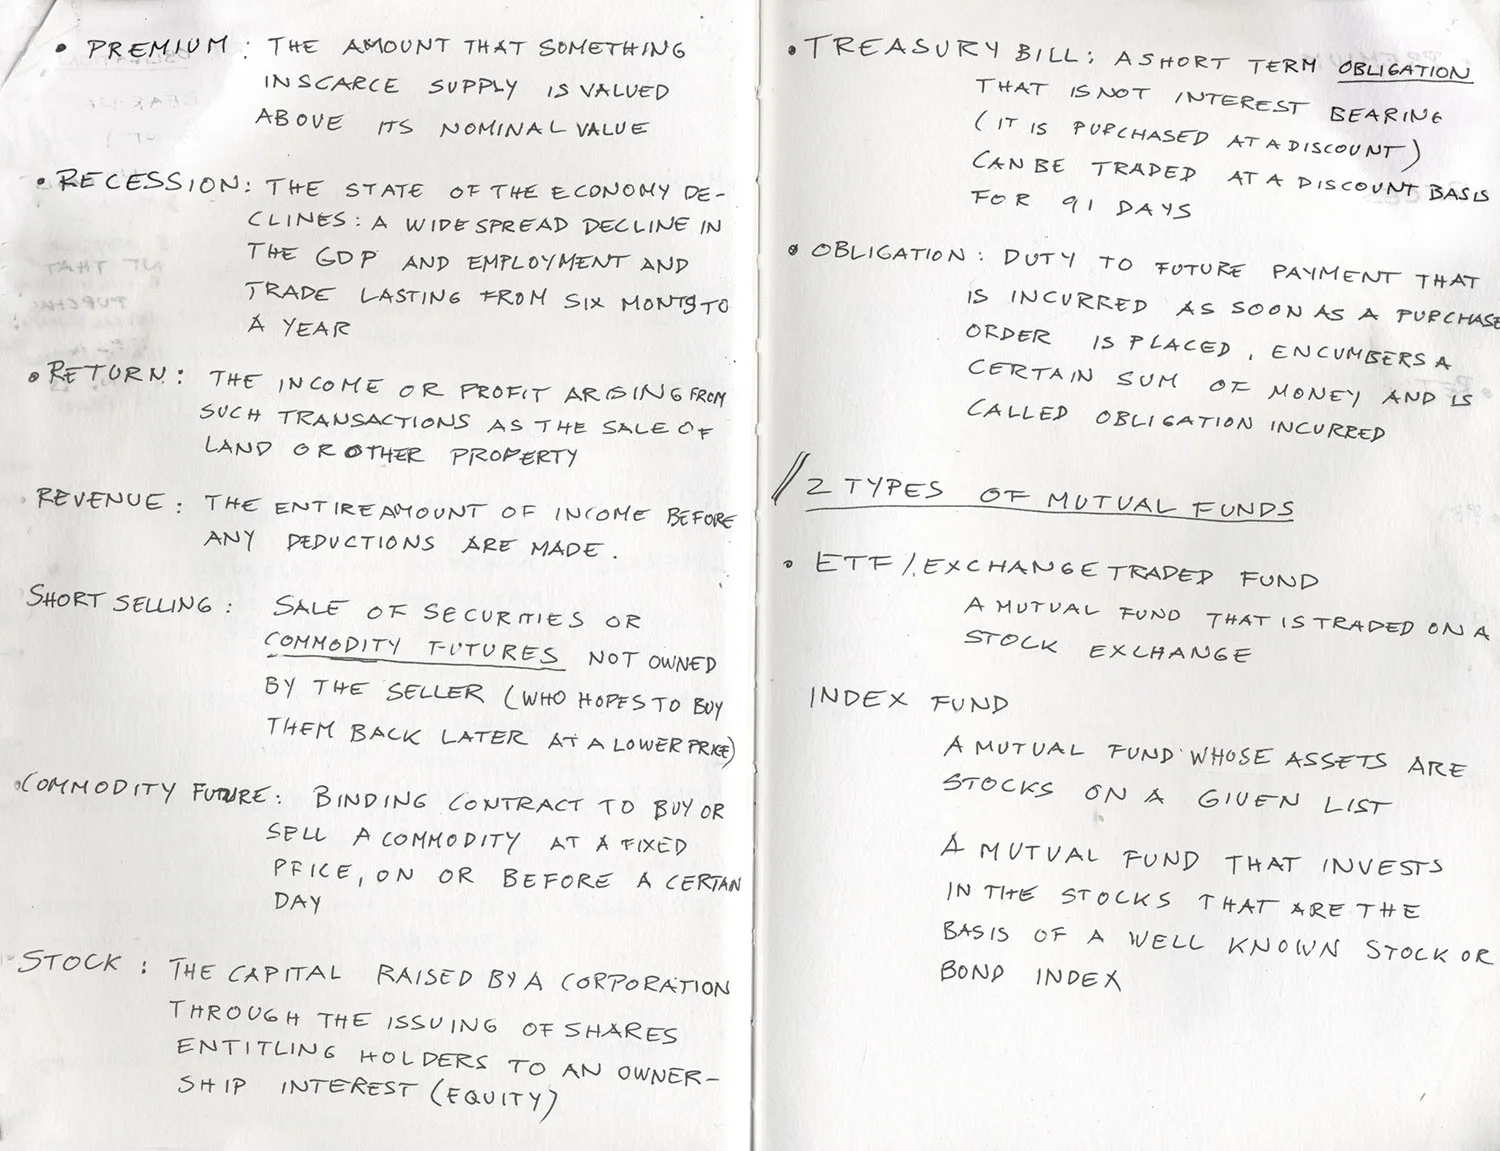 • PREMIUM : THE AMOUNT THAT SOMETHING
IN SCARCE SUPPLY IS VALUED
ABOVE ITS NOMINAL VALUE
• RECESSION: THE STATE OF THE ECONOMY DE-
CLINES: A WIDESPREAD DECLINE IN
THE GDP AND EMPLOYMENT AND
TRADE LASTING FROM SIX MONTS TO
A YEAR
• RETURN: THE INCOME OR PROFIT ARISING FROM
SUCH TRANSACTIONS AS THE SALE OF
LAND OR OTHER PROPERTY
• REVENUE: THE ENTIRE AMOUNT OF INCOME BEFORE
ANY DEDUCTIONS ARE MADE.
SHORT SELLING: SALE OF SECURITIES OR
COMMODITY FUTURES NOT OWNED
BY THE SELLER (WHO HOPES TO BUY
THEM BACK LATER AT A LOWER PRICE)
• COMMODITY FUTURE: BINDING CONTRACT TO BUY OR
SELL A COMMODITY AT A FIXED
PRICE, ON OR BEFORE A CERTAN
DAY
• STOCK: THE CAPITAL RAISED BY A CORPORATION
THROUGH THE ISSUING OF SHARES
ENTITLING HOLDERS TO AN OWNER-
SHIP INTEREST (EQUITY)
• TREASURY BILL; A SHORT TERM OBLIGATION
THAT IS NOT INTEREST BEARING
(IT IS PURCHASED AT A DISCOUNT)
CAN BE TRADED AT A DISCOUNT BASIS
FOR 91 DAYS
• OBLIGATION: DUTY TO FUTURE PAYMENT THAT
IS INCURRED AS SOON AS A PURCHASE
ORDER IS PLACED, ENCUMBERS A
CERTAIN SUM OF MONEY AND IS
CALLED OBLIGATION INCURRED
// 2 TYPES OF MUTUAL FUNDS
• ETF /. EXCHANGE TRADED FUND
A MUTUAL FUND THAT IS TRADED ON A
STOCK EXCHANGE
INDEX FUND
A MUTUAL FUND WHOSE ASSETS ARE
STOCKS ON A GIVEN LIST
A MUTUAL FUND THAT INVESTS
IN THE STOCKS THAT ARE THE
BASIS OF A WELL KNOWN STOCK OR
BOND INDEX